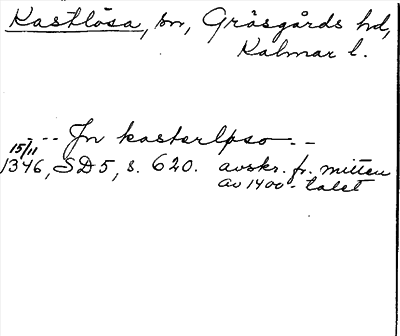 Kastlösa, sn, Gräsgårds hd,
Kalmar l.
- -- Jn kasterløso - -
15/11
1346, SD5, s. 620. avskr. fr. mitten
av 1400-talet